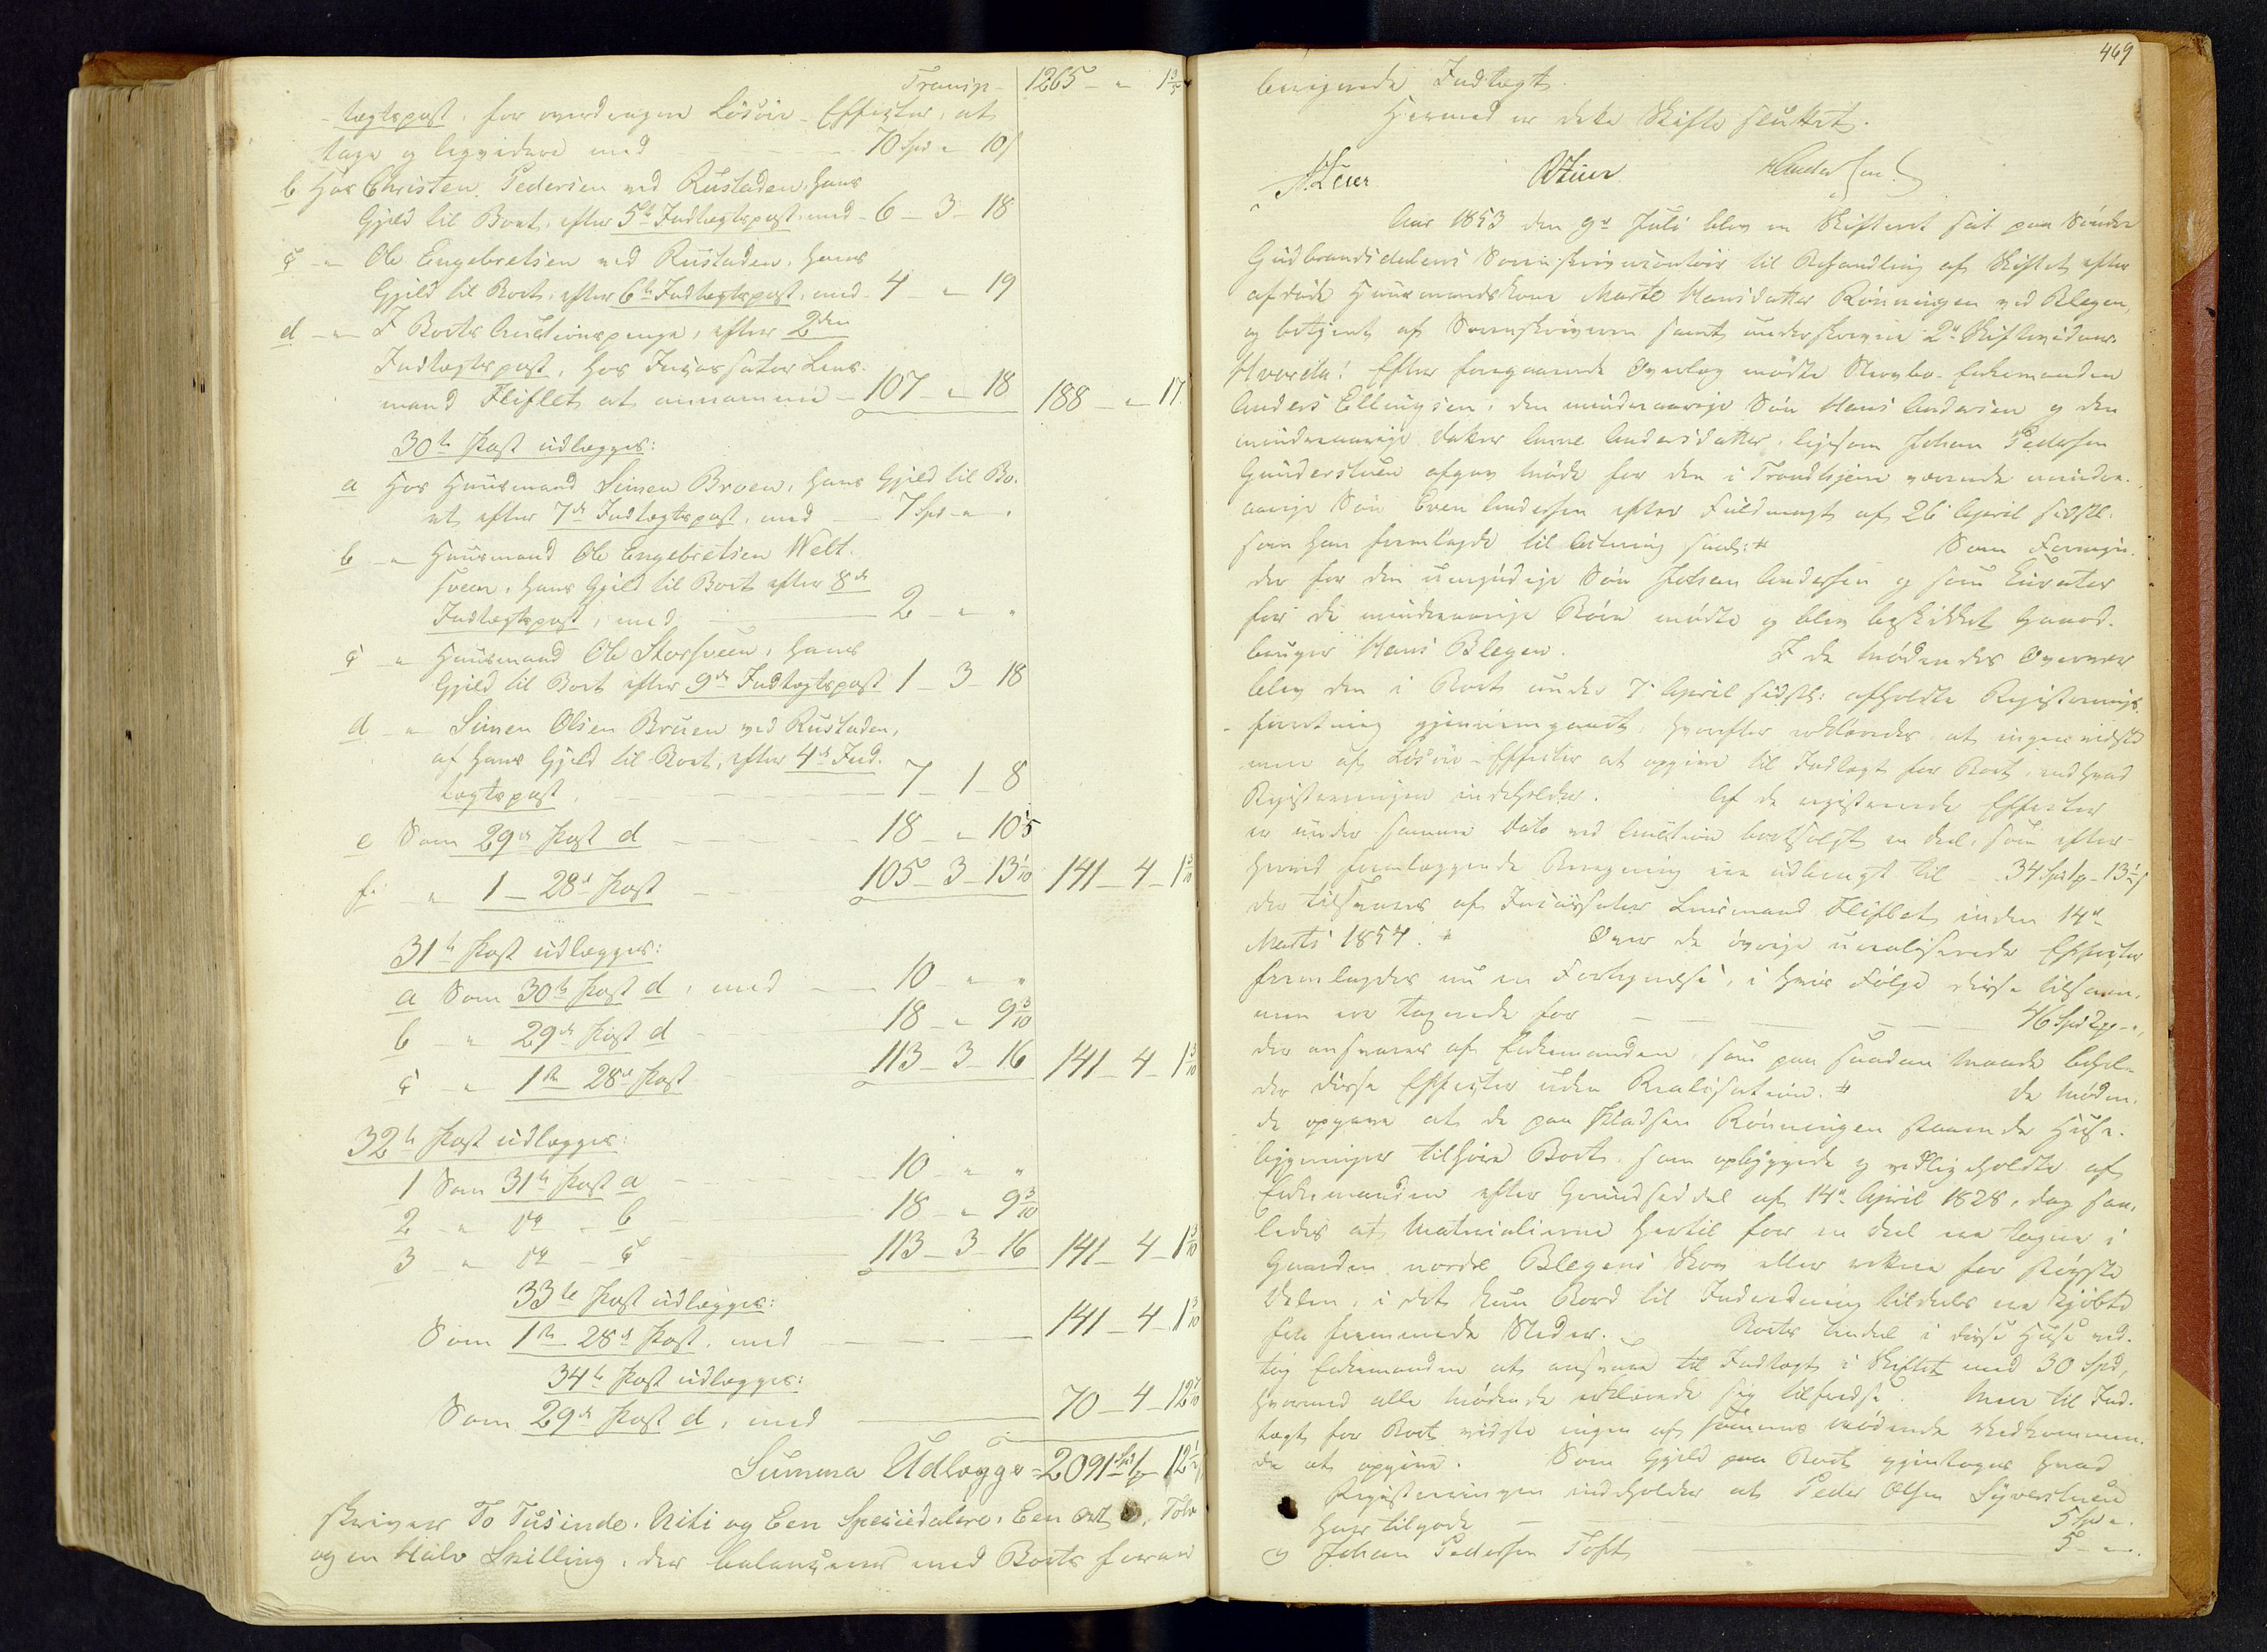 Transp. 1265 - " 1 3/5
tægtspost, for overdragne Løsøre-Effecter, at
tage og liqvidere med 70 Spd " 10 ß
b Hos Christen Pedersen ved Rustaden, hans
Gjeld til Boet, efter 5te Indtægtspost, med - 6 - 3 - 18
c - " Ole Engebretsen ved Rustaden, hans
Gjeld til Boet, efter 6te Indtægtspost, med - 4 - " 19
d - " I Boets Auctionspenge, efter 2den
Indtægtspost, hos Incassator Lens-
mand Fliflet at annamme - 107 - " 18 188 - " 17
30te Post udlægges:
a Hos Huusmand Simen Broen, hans Gjeld til Bo-
et efter 7de Indtægtspost, med 7 Spd - " "
b - " Huusmand Ole Engebretsen Welt-
sveen, hans Gjeld til Boet efter 8de
Indtægtspost, med 2 - " "
c - " Huusmand Ole Storsveen, hans
Gjeld til Boet efter 9de Indtægtspost 1 - 3 - 18
d - " Simen Olsen Bruen ved Rustaden,
af hans Gjeld til Boet, efter 4de Ind-
tægtspost, 7 - 1 - 8
e Som 29de Post d 18 - " 10 5
f. - " 1 - 28de Post 105 - 3 - 13 1/10 141 - 4 - 1 3/10
31te Post udlægges:
a Som 30te Post d, med 10 - " "
b - " 29de Post d 18 - " 9 3/10
c - " 1te 28de Post 113 - 3 - 16 141 - 4 - 1 3/10
32te Post udlægges:
1 Som 31te Post a 10 - " "
2 - " do - b 18 - " 9 3/10
3 - " do - c 113 - 3 - 16 141 - 4 - 1 3/10
33te Post udlægges:
Som 1te 28de Post, med 141 - 4 - 1 3/10
34te Post udlægges:
Som 29de Post d, med 70 - 4 - 12
Summa Udlægge = 2091 Spd 1 - 12 1/2
skriver To Tusinde, Niti og Een Speciedalere, Een Ort, Tolv
og en Halv Skilling, der balancerer med Boets foran
469
beregnede Indtægt.
Hermed er dette Skifte sluttet.
Aar 1853 den 9de Juli blev en Skifteret sat paa Søndre
Gudbrandsdalens Sorenskrivercontoir til Behandling af Skiftet efter
afdøde Huusmandskone Marte Hansdatter Rønningen ved Blegen,
og betjent af Sorenskriveren samt underskrevne 2de Skiftevidner.
Hvorda: Efter foregaaende Overlæg mødte Stervbo-Enkemanden
Anders Ellingsen, den mindreaarige Søn Hans Andersen og den
mindreaarige Datter Anne Andersdatter, ligesom Johan Pedersen
Gunderstuen afgav Møde for den i Trondhjem værende mindre-
aarige Søn Even Andersen efter Fuldmagt af 26 April sidstl.
som han fremlagde til Actning saal: # Som Formyn-
der for den umyndige Søn Johan Andersen og som Curator
for de mindreaarige Børn mødte og blev beskikket Gaard-
bruger Hans Blegen. I de Mødendes Overvær
blev den i Boet under 7 April sidstl: afholdte Registrerings-
forretning gjennemgaaet, hvorefter erklæredes at ingen vidste
mere af Løsøre-Effecter at opgive til Indtægt for Boet, end hvad
Registreringen indeholder. Af de registrerede Effecter
er under samme Dato ved Auction bortsolgt en Deel, som efter
herved fremlæggende Beregning ere udbragt til - 34 Spd 1 - 13 1/2 ß
der tilsvares af Incassator Lensmand Fliflet inden 14de
Marts 1854. # Over de øvrige urealiserede Effecter
fremlagdes nu en Fortegnelse, i hvis Følge disse tilsam-
men ere taxerede for 46 Spd 2 - "
der ansvares af Enkemanden, som paa saadan Maade behol-
der disse Effecter uden Realisation. # De Møden-
de opgave at de paa Pladsen Rønningen staaende Huse-
bygninger tilhøre Boet, som opbyggede og vedligeholdte af
Enkemanden efter Grundseddel af 14de April 1828, dog saa-
ledes at Materialierne hertil for en Deel ere tagne i
Gaarden nordre Blegens Skov eller rettere for største
Delen, i det kun Bord til Indredning tildeels ere kjøbte
fra fremmede Steder. Boets Andeel i disse Huse ved-
tog Enkemanden at ansvare til Indtægt i Skiftet med 30 Spd,
hvormed alle Mødende erklærede sig tilfredse. Mere til Ind-
tægt for Boet vidste ingen af sammes mødende Vedkommen-
de at opgive. Som Gjeld paa Boet gjentages hvad
Registreringen indeholder at Peder Olsen Syverstuen
har tilgode 5 Spd ".
og Johan Pedersen Toft 5 - "